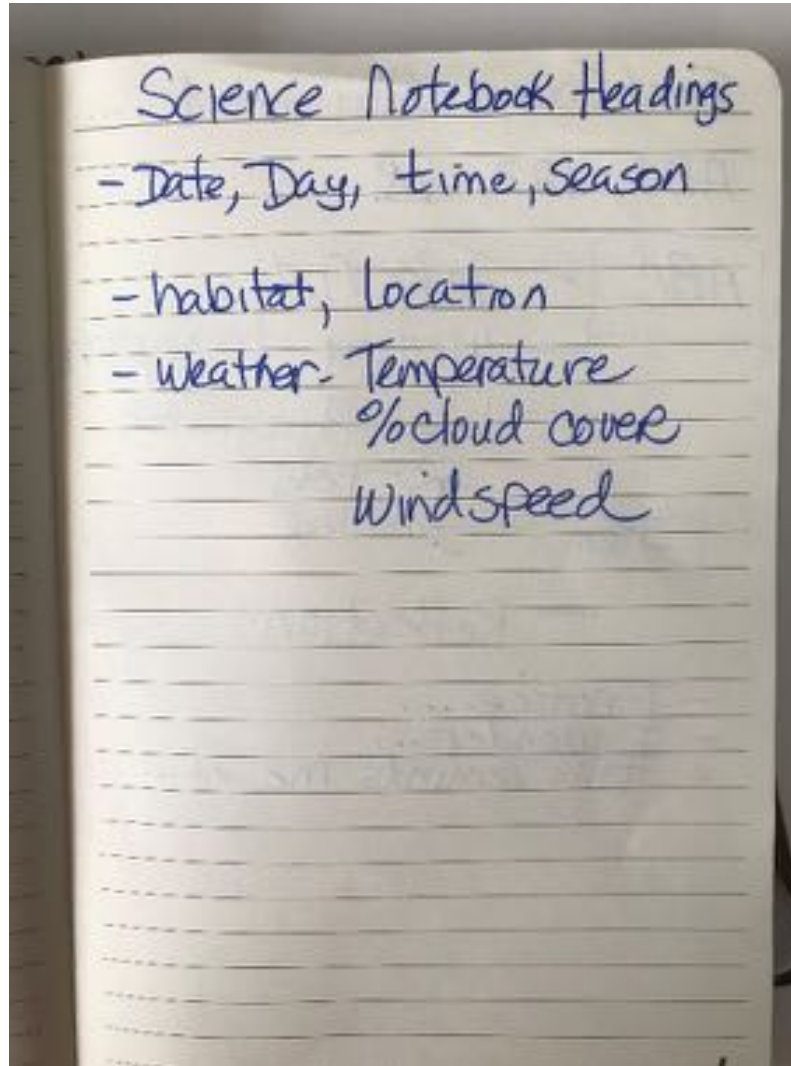 Science Notebook Headings
- Date, Day, time, season
- habitat, Location
- Weather- Temperature
% cloud cover
Windspeed